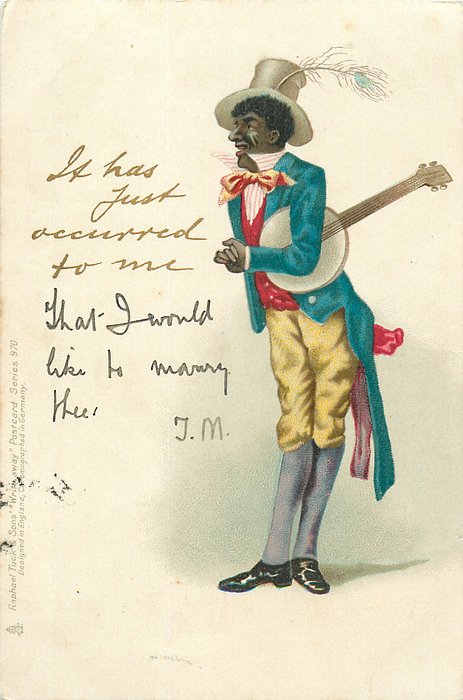 It has
just
occurred
to me
That I would
like to marry
thee.
J.M.
Raphael Tuck & Sons' "Write away" Postcard Series 970.
Designed in England, Chromographed in Germany.